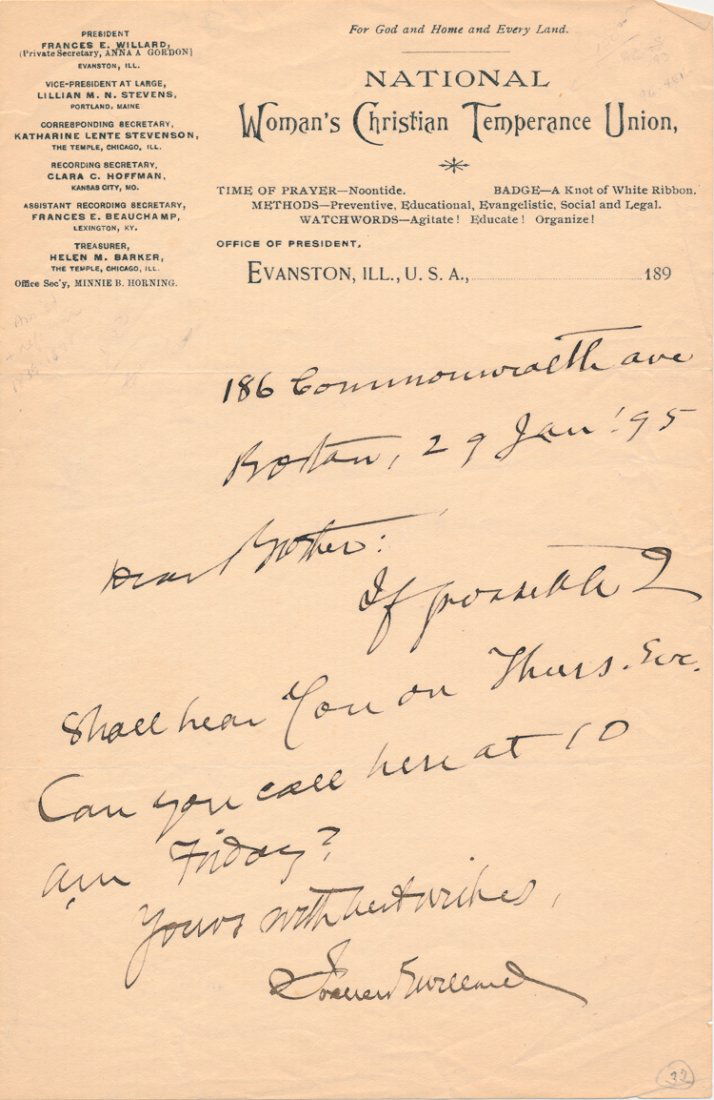 PRESIDENT
FRANCES E. WILLARD,
(Private Secretary, ANNA A GORDON)
EVANSTON, ILL.
VICE-PRESIDENT AT LARGE,
LILLIAN M. N. STEVENS,
PORTLAND, MAINE
CORRESPONDING SECRETARY,
KATHARINE LENTE STEVENSON,
THE TEMPLE, CHICAGO, ILL.
RECORDING SECRETARY,
CLARA C. HOFFMAN,
KANSAS CITY, MO.
ASSISTANT RECORDING SECRETARY,
FRANCES E. BEAUCHAMP,
LEXINGTON, KY.
TREASURER,
HELEN M. BARKER,
THE TEMPLE, CHICAGO, ILL.
Office Sec'y, MINNIE B. HORNING.
For God and Home and Every Land.
NATIONAL
Woman's Christian Temperance Union,
TIME OF PRAYER—Noontide. BADGE—A Knot of White Ribbon.
METHODS—Preventive, Educational, Evangelistic, Social and Legal.
WATCHWORDS—Agitate! Educate! Organize!
OFFICE OF PRESIDENT,
EVANSTON, ILL., U. S. A., 189
186 Commonwealth ave
Boston, 29 Jan! 95
Dear Brother:
If possible I
Shall hear You on Thurs. Eve.
Can you call here at 10
am Friday?
Yours with best wishes,
Frances E Willard
32